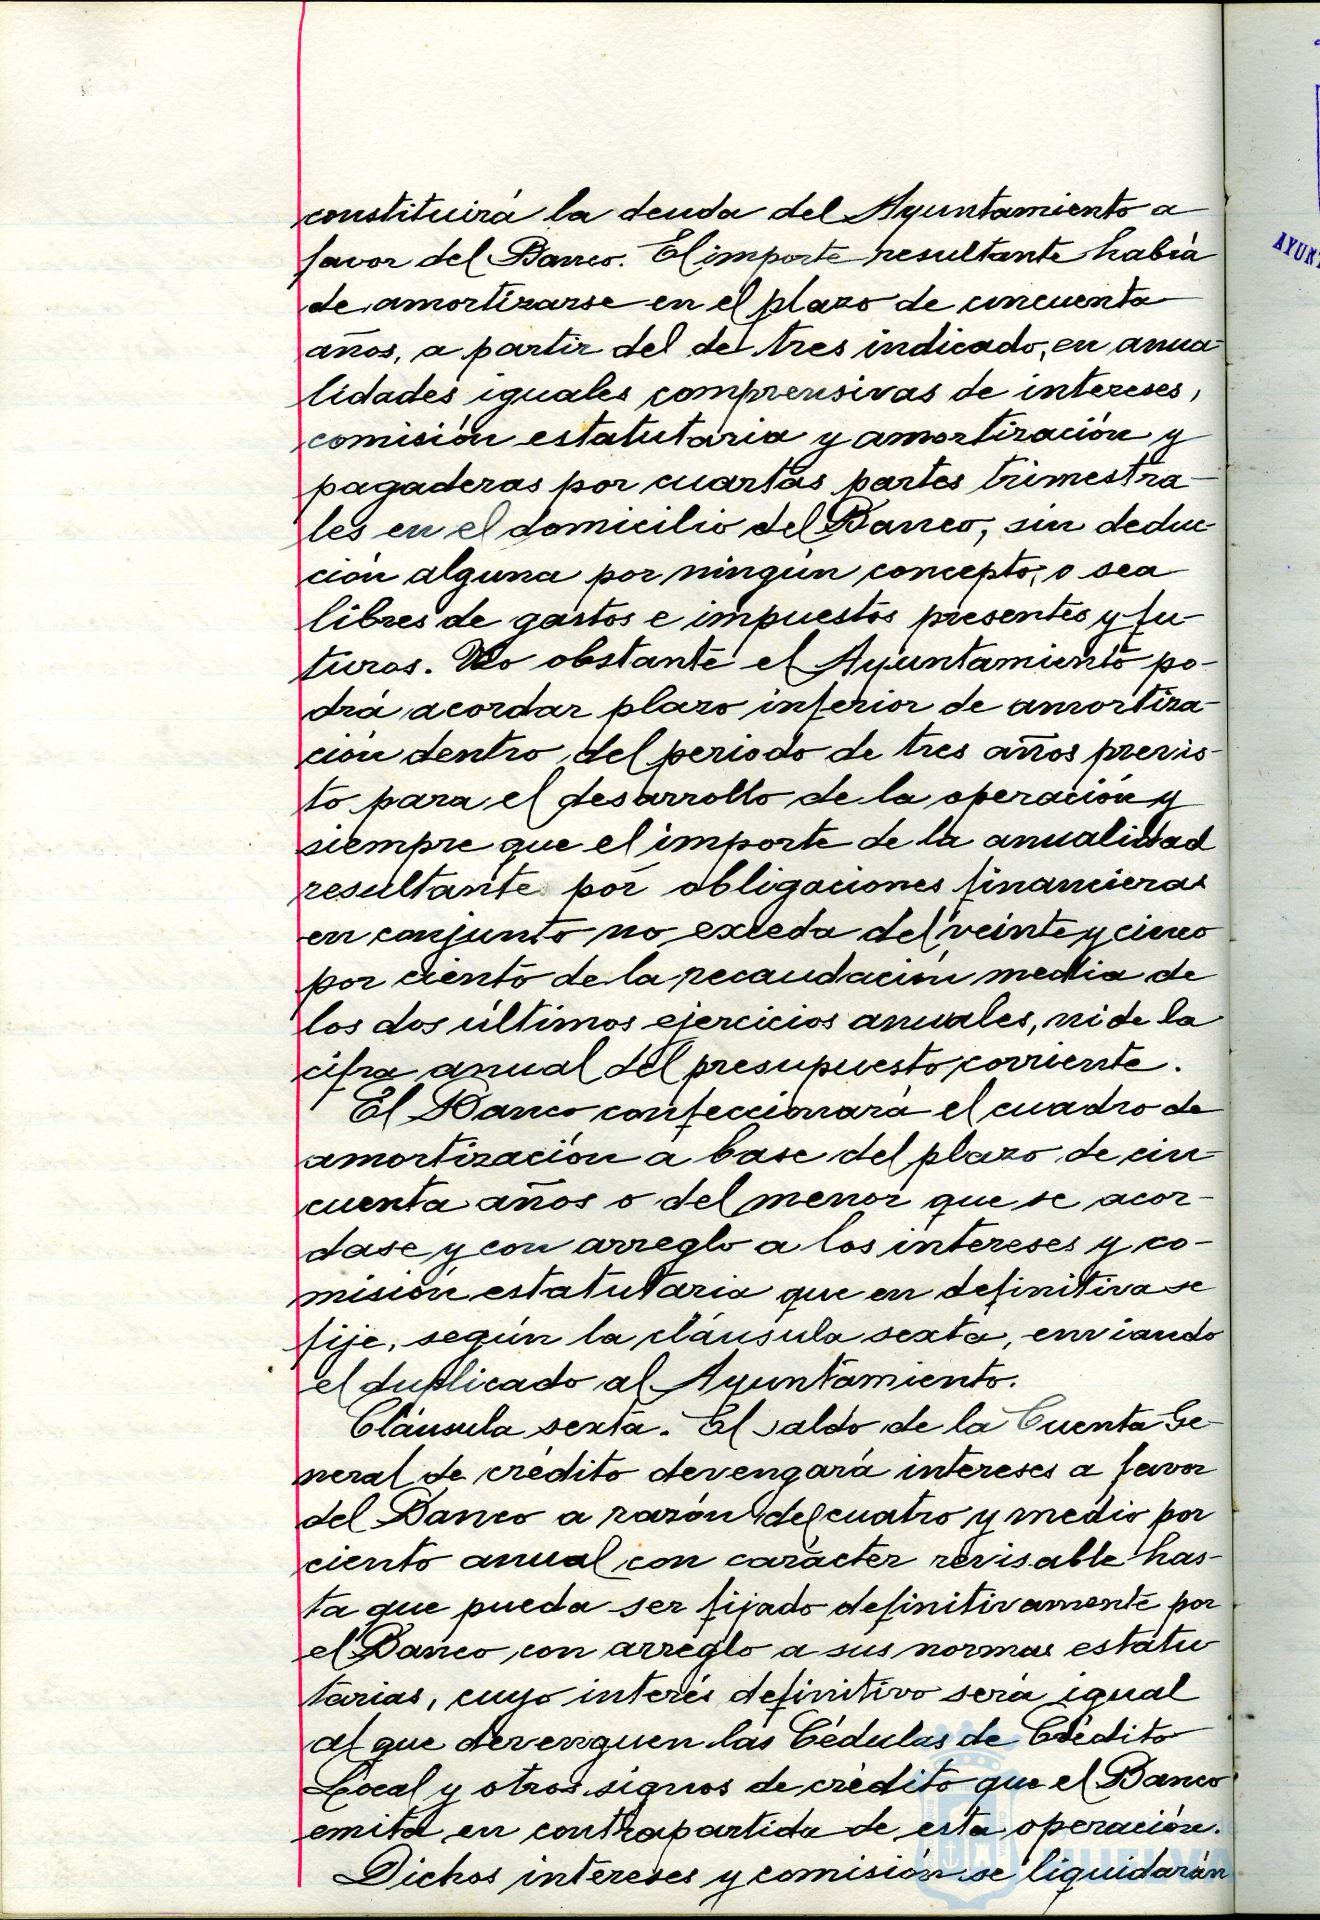 constituirá la deuda del Ayuntamiento a
favor del Banco. El importe resultante habrá
de amortizarse en el plazo de cincuenta
años, a partir del de tres indicado, en anua-
lidades iguales comprensivas de intereses,
comisión estatutaria y amortización y
pagaderas por cuartas partes trimestra-
les en el domicilio del Banco, sin deduc-
ción alguna por ningún concepto, o sea
libres de gastos e impuestos presentes y fu-
turos. No obstante el Ayuntamiento po-
drá acordar plazo inferior de amortiza-
ción dentro del periodo de tres años previs-
to para el desarrollo de la operación y
siempre que el importe de la anualidad
resultante por obligaciones financieras
en conjunto no exceda del veinte y cinco
por ciento de la recaudación media de
los dos últimos ejercicios anuales, ni de la
cifra anual del presupuesto corriente.
El Banco confeccionará el cuadro de
amortización a base del plazo de cin-
cuenta años o del menor que se acor-
dase y con arreglo a los intereses y co-
misión estatutaria que en definitiva se
fije, según la cláusula sexta, enviando
el duplicado al Ayuntamiento.
Cláusula sexta. El saldo de la Cuenta Ge-
neral de crédito devengará intereses a favor
del Banco a razón del cuatro y medio por
ciento anual con carácter revisable has-
ta que pueda ser fijado definitivamente por
el Banco con arreglo a sus normas estatu
tarias, cuyo interés definitivo será igual
al que devenguen las Cédulas de Crédito
Local y otros signos de crédito que el Banco
emita en contrapartida de esta operación.
Dichos intereses y comisión se liquidarán
HUELVA